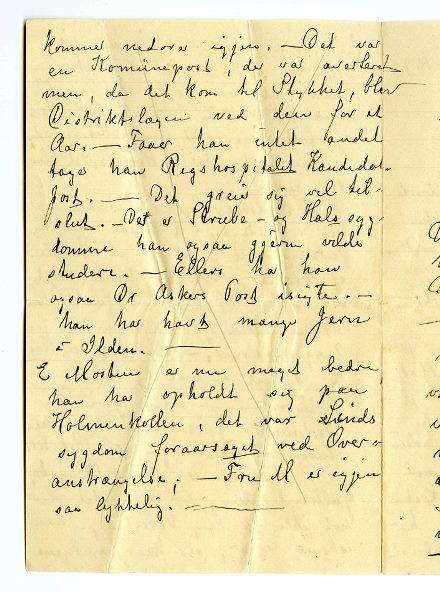 kommer nedover igjen. — Det var
en Komünepost, der var averteret
men, da det kom til Stykket, blev
Distriktslægen ved den for et
Aar. — Faaer han intet andet
tage han Regshospitalet Kandidat-
post. — Det greie sig vel til-
slut. — Det er Strube - og Hals syg-
domme han ogsaa gjerne vilde
studere. — Ellers har han
ogsaa Dr Askers Post isigte. —
han har havt mange Jern
i Ilden. —
E Mosten er nu meget bedre
han har opholdt sig paa
Holmenkollen, det var Sinds
sygdom foraarsaget ved Over=
anstrængelse; — Fru M er igjen
saa lykkelig. —